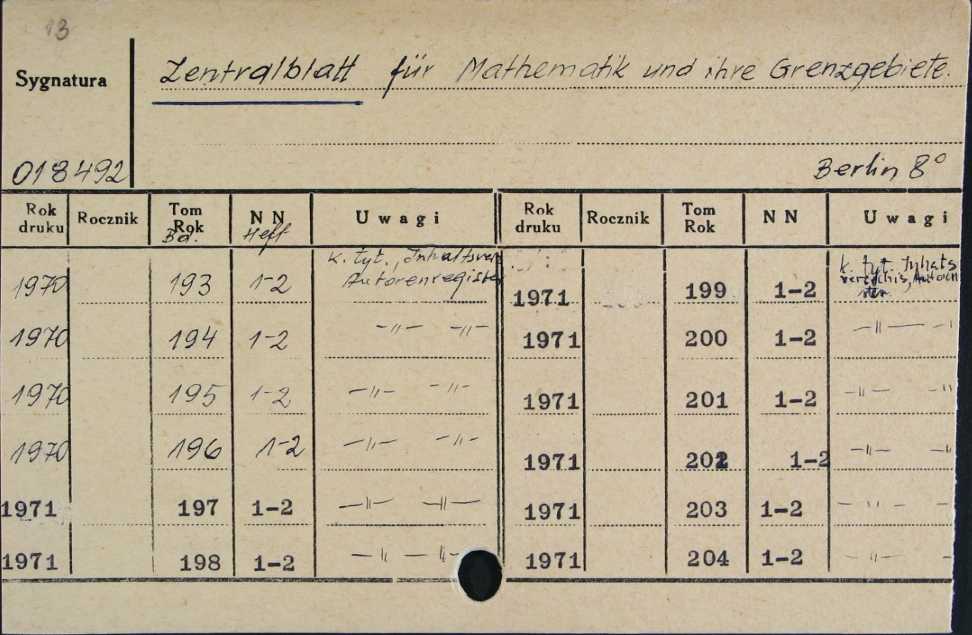 13
Sygnatura Zentralblatt für Mathematik und ihre Grenzgebiete.
018492 Berlin 8°
Rok druku Rocznik Tom Rok Bd. N N Heft Uwagi Rok druku Rocznik Tom Rok N N Uwagi
1970 193 1-2 k. tyt., Inhaltsver Autorenregister 1971 199 1-2 k. tyt. Inhats
1970 194 1-2 -〃- -〃- 1971 200 1-2 -〃-
1970 195 1-2 -〃- -〃- 1971 201 1-2 -〃- -〃
1970 196 1-2 -〃- -〃- 1971 202 1-2 -〃- -〃
1971 197 1-2 -〃- -〃- 1971 203 1-2 -〃- -〃
1971 198 1-2 -〃- -〃- 1971 204 1-2 -〃- -